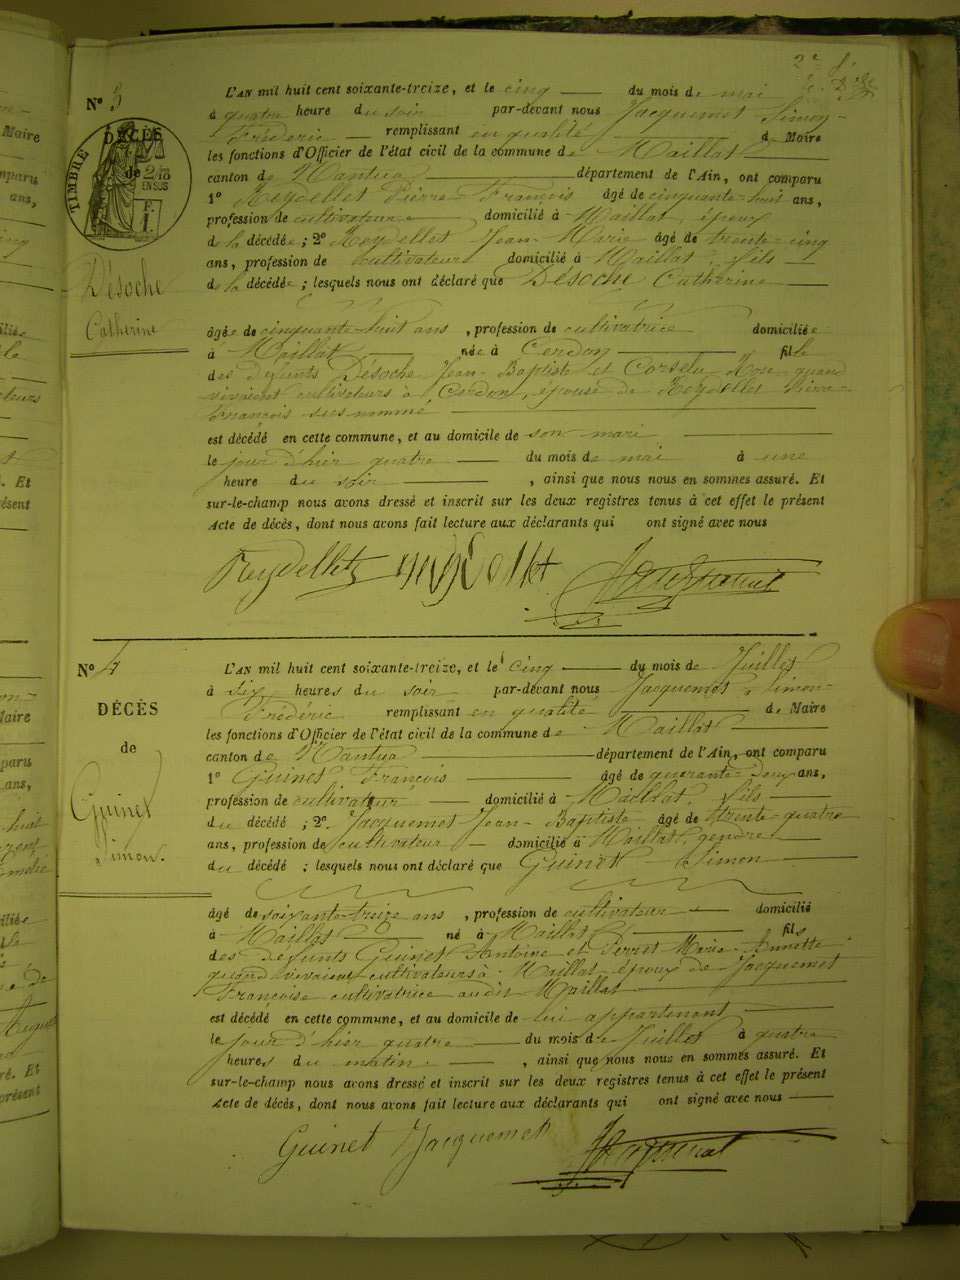 N° 3
DÉCÈS
de
TIMBRE
2/10
EN SUS
F.
1.
Désoche
Catherine
L'AN mil huit cent soixante-treize, et le cinq du mois de mai
à quatre heure du soir par-devant nous Jacquemet Simon-
Frédéric remplissant en qualité de Maire
les fonctions d'Officier de l'état civil de la commune de Maillat
canton de Nantua département de l'Ain, ont comparu
1° Reydellet Pierre François âgé de cinquante-huit ans,
profession de cultivateur domicilié à Maillat, époux
de la décédée; 2° Reydellet Jean-Marie âgé de trente-cinq
ans, profession de cultivateur domicilié à Maillat, fils
de la décédée; lesquels nous ont déclaré que Désoche Catherine
âgée de cinquante-huit ans, profession de cultivatrice domiciliée
à Maillat née à Cerdon fille
des défunts Désoche Jean-Baptiste et quand
vivaient cultivateurs à Cerdon, épouse de Reydellet Pierre-
François susnommé
est décédé en cette commune, et au domicile de son mari
le jour d'hier quatre du mois de mai à une
heure du soir, ainsi que nous nous en sommes assuré. Et
sur-le-champ nous avons dressé et inscrit sur les deux registres tenus à cet effet le présent
Acte de décès, dont nous avons fait lecture aux déclarants qui ont signé avec nous
Reydellet
N° 4
DÉCÈS
de
Guinet
Simon.
L'AN mil huit cent soixante-treize, et le cinq du mois de Juillet
à six heures du soir par-devant nous Jacquemet Simon-
Frédéric remplissant en qualité de Maire
les fonctions d'Officier de l'état civil de la commune de Maillat
canton de Nantua département de l'Ain, ont comparu
1° Guinet François âgé de quarante-deux ans,
profession de cultivateur domicilié à Maillat, fils
du décédé; 2° Jacquemet Jean-Baptiste âgé de trente-quatre
ans, profession de cultivateur domicilié à Maillat, gendre
du décédé; lesquels nous ont déclaré que Guinet Simon
âgé de soixante-treize ans, profession de cultivateur domicilié
à Maillat né à Maillat fils
des défunts Guinet Antoine et Perret Marie-Annette
quand vivaient cultivateurs à Maillat, époux de Jacquemet
Françoise cultivatrice audit Maillat
est décédé en cette commune, et au domicile de lui appartenant
le jour d'hier quatre du mois de Juillet à quatre
heures du matin, ainsi que nous nous en sommes assuré. Et
sur-le-champ nous avons dressé et inscrit sur les deux registres tenus à cet effet le présent
Acte de décès, dont nous avons fait lecture aux déclarants qui ont signé avec nous
Guinet Jacquemet